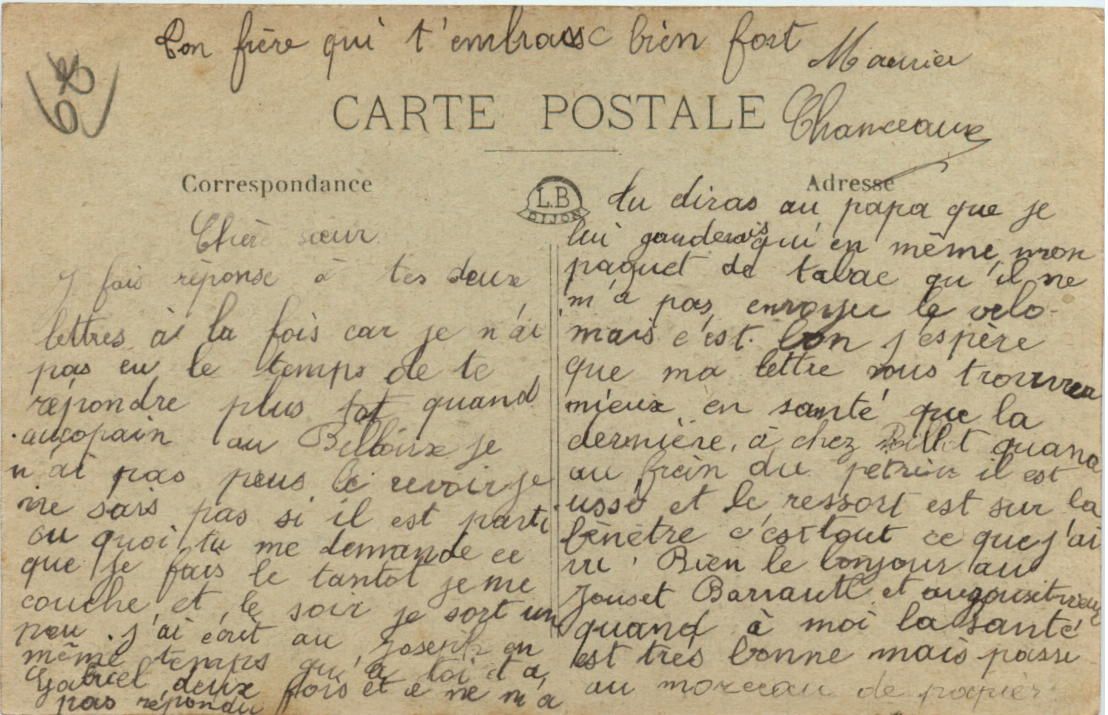 Ton frère qui t'embrasse bien fort
Chanceaux
68
CARTE POSTALE
Correspondance
Adresse
L.B
DIJON
Chère sœur
J fais réponse à tes deux
lettres à la fois car je n'ai
pas eu le temps de te
répondre plus tot quand
aucopain au je
n'ai pas peus le revoir je
ne sais pas si il est parti
ou quoi, tu me demande ce
que je fais le tantot je me
couche et le soir je sort un
peu. j'ai écrit au Joseph en
même temps qu'à toi et à
Gabriel deux fois et e ne m'a
pas répondu
tu diras au papa que je
lui gauderais qui en même mon
paquet de tabac qu'il ne
m'a pas envoyer le velo
mais c'est bon j'espère
que ma lettre vous trouvera
mieux en santé que la
dernière, à chez Billot quand
au frein du petrin il est
ussé et le ressort est sur la
fenètre c'est tout ce que j'ai
vu. Bien le bonjour au
Jouset Barrault et
quand à moi la santé
est très bonne mais passe
au morceau de papier